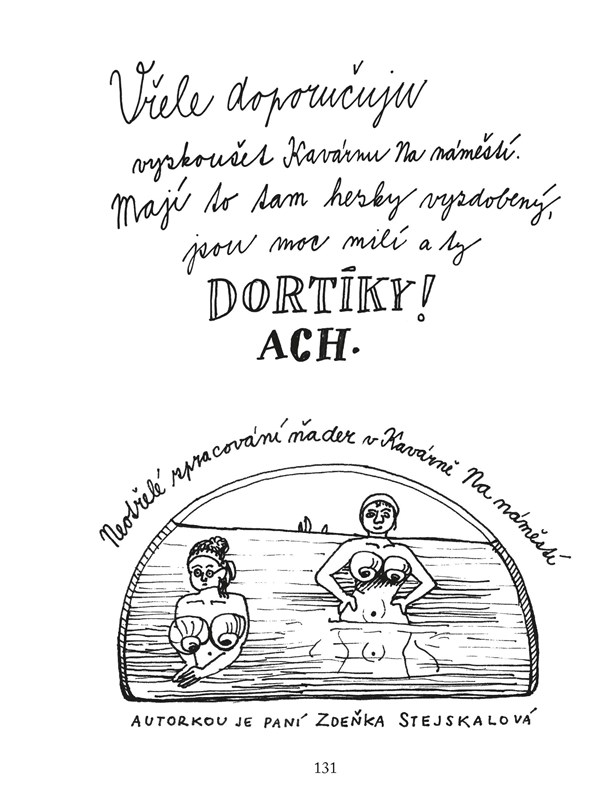 Vřele doporučuju
vyzkoušet Kavárnu Na náměstí.
Mají to tam hezky vyzdobený,
jsou moc milí a ty
DORTÍKY!
ACH.
Neotřelé zpracování ňader v Kavárně Na náměstí
AUTORKOU JE PANÍ ZDEŇKA STEJSKALOVÁ
131